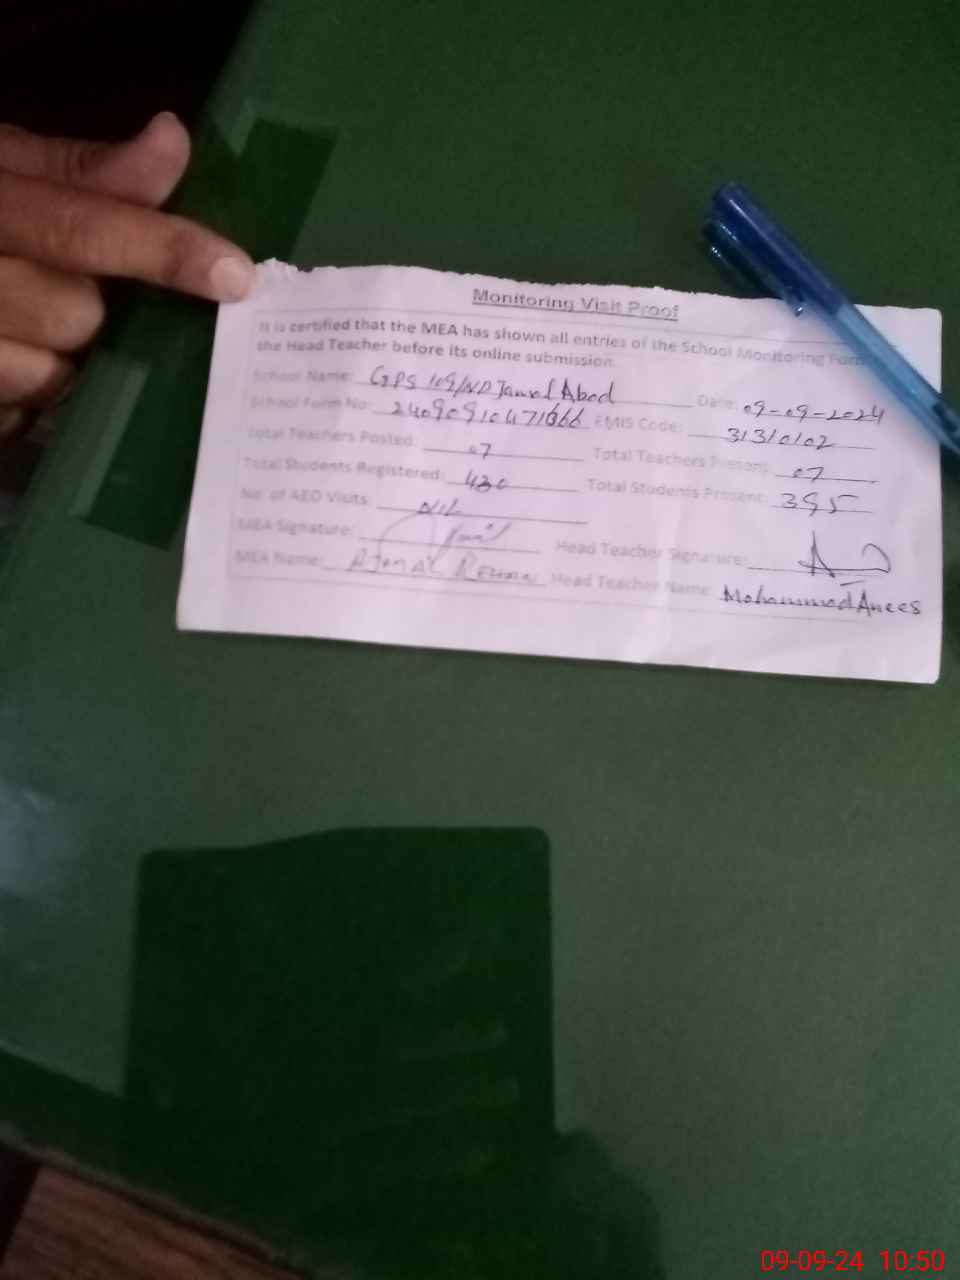 Monitoring Visit Proof
It is certified that the MEA has shown all entries of the School Monitoring Form
the Head Teacher before its online submission.
School Name: GPS 109/NP Jamal Abad Date: 09-09-2024
School Form No: EMIS Code: 31310102
Total Teachers Posted: 07 Total Teachers Present: 07
Total Students Registered: 430 Total Students Present: 395
No. of AEO Visits: Nil
MEA Signature: Head Teacher Signature:
MEA Name: Ajmal Rehman Head Teacher Name: Mohammad Anees
09-09-24 10:50